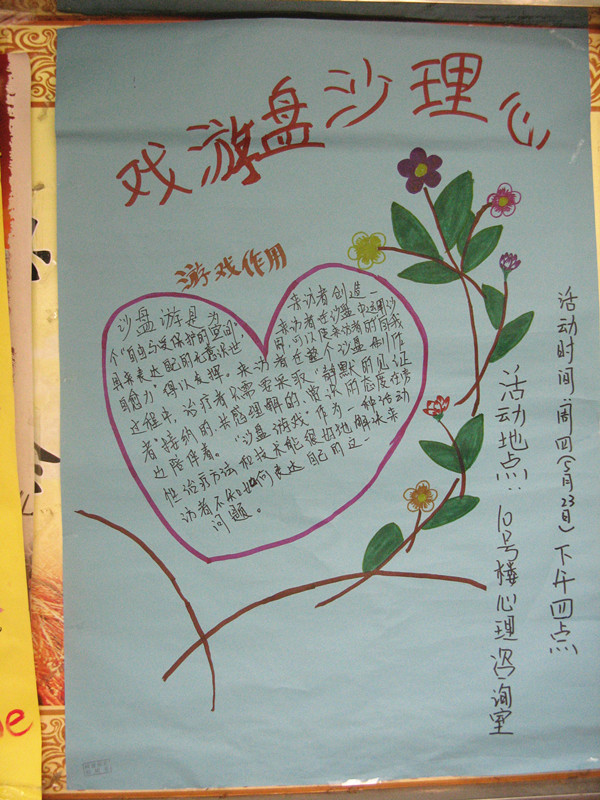 心理沙盘游戏
游戏作用
沙盘游是为来访者创造一
个"自由与受保护的空间,来访者在沙盘中运用沙
具来表达的无意识世用,可以使来访者的自我
自愈力"得以发挥。来访者在整个沙盘制作
过程中,治疗者只需要采取"静默的见证
者"接纳的、共感理解的、赏识的态度在旁
边陪伴着。"沙盘游戏"作为一种活动
性治疗方法和技术能很好地解决来
访者不知如何表达自己的这一
问题。
活动时间:周四(5月23日)下午四点
活动地点:10号楼心理咨询室